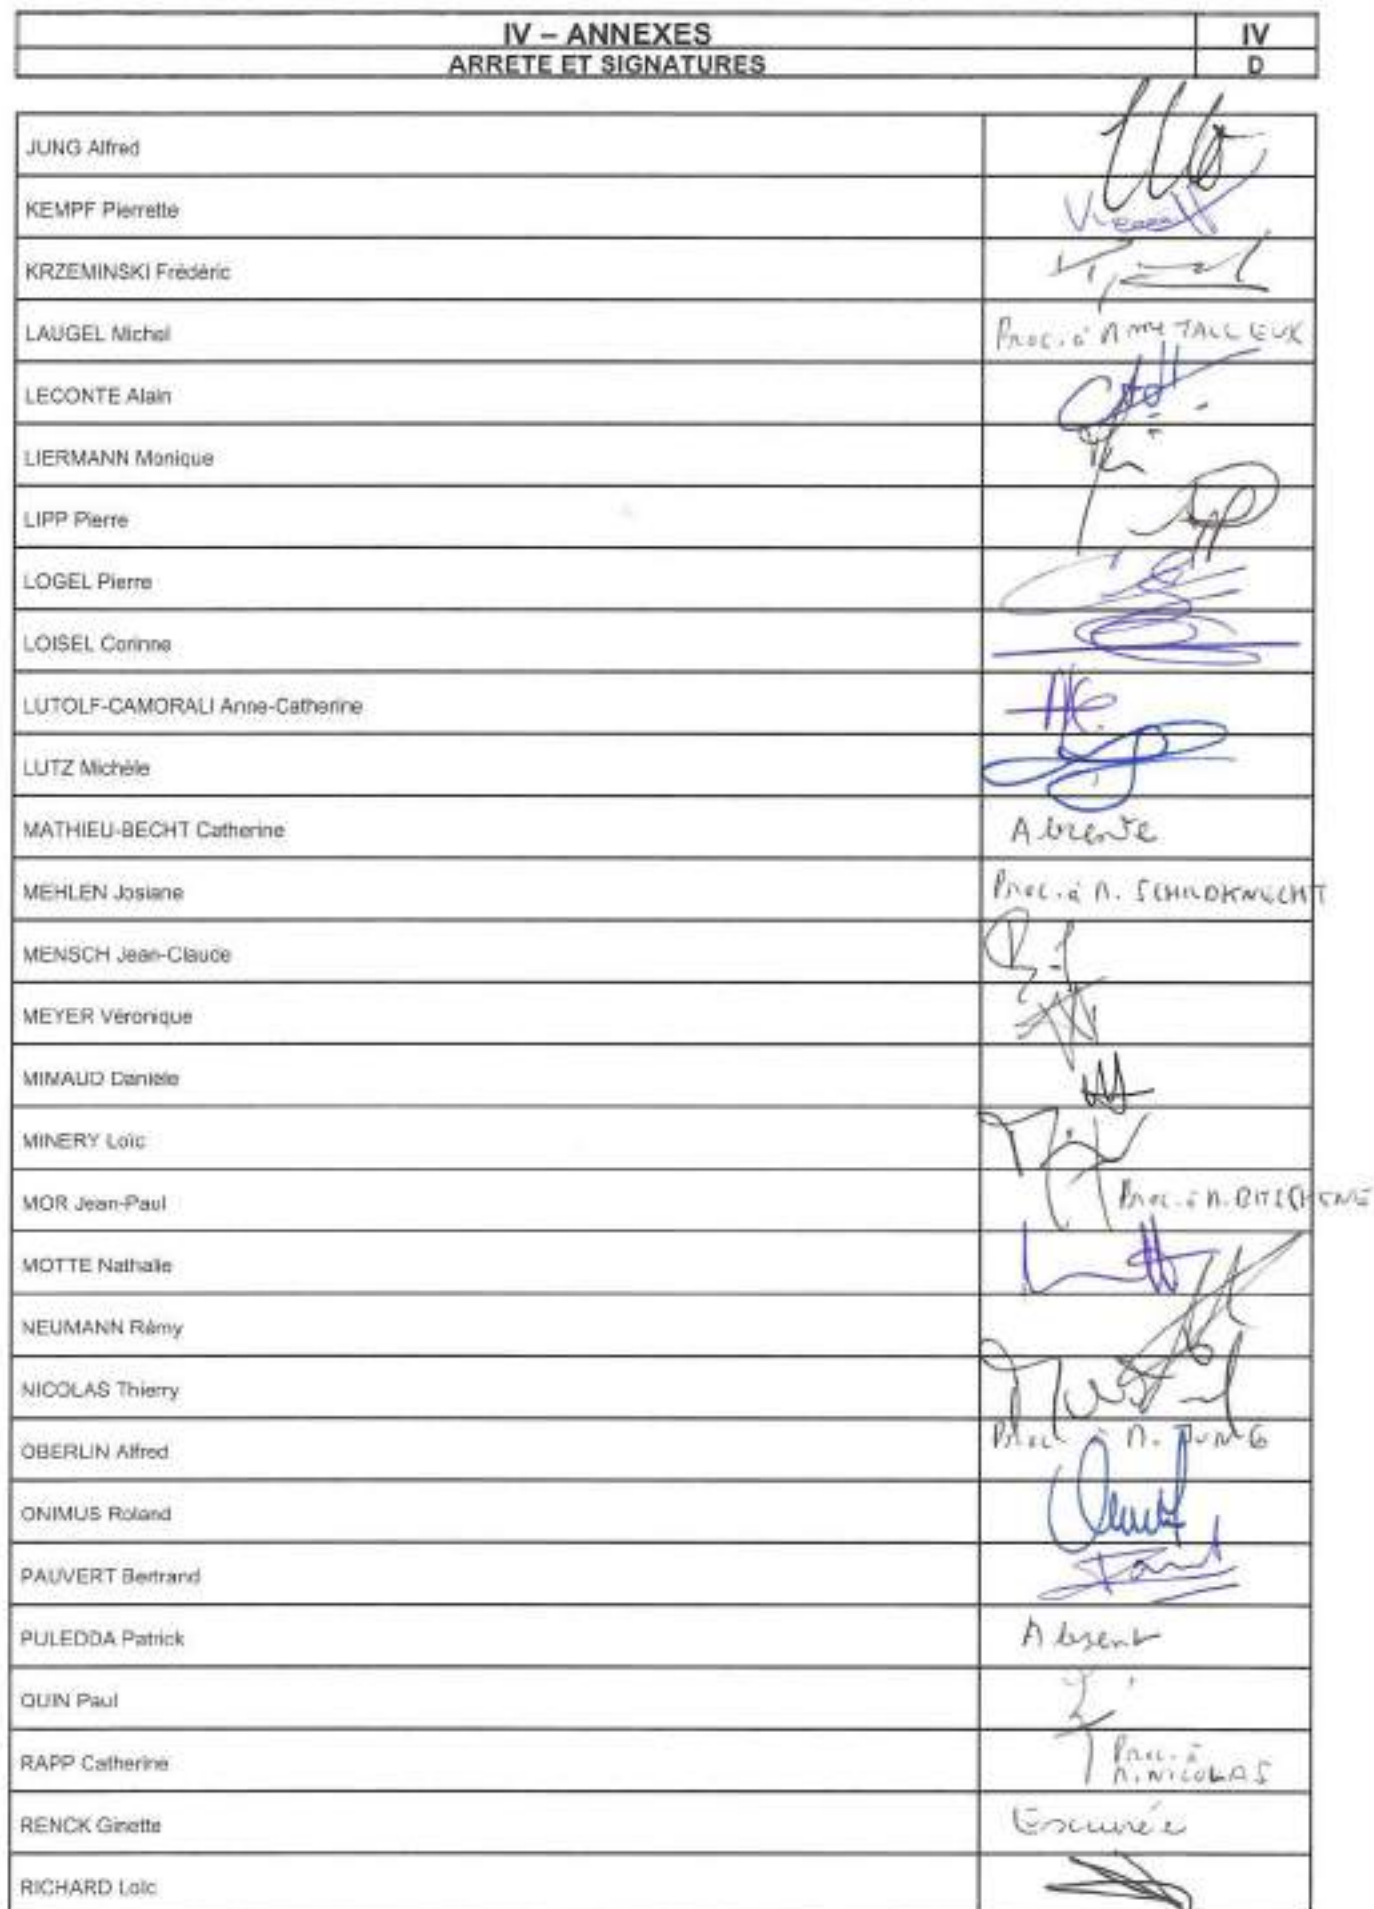 IV – ANNEXES IV
ARRETE ET SIGNATURES D
JUNG Alfred
KEMPF Pierrette
KRZEMINSKI Frédéric
LAUGEL Michel Proc. à METALLEUX
LECONTE Alain
LIERMANN Monique
LIPP Pierre
LOGEL Pierre
LOISEL Corinne
LUTOLF-CAMORALI Anne-Catherine
LUTZ Michèle
MATHIEU-BECHT Catherine Absente
MEHLEN Josiane Proc. à M. SCHILDKNECHT
MENSCH Jean-Claude
MEYER Véronique
MIMAUD Danièle
MINERY Loïc
MOR Jean-Paul Proc. à M.
MOTTE Nathalie
NEUMANN Rémy
NICOLAS Thierry
OBERLIN Alfred Proc à M. JUNG
ONIMUS Roland
PAUVERT Bertrand
PULEDDA Patrick Absent
QUIN Paul
RAPP Catherine Proc. à
M. NICOLAS
RENCK Ginette Excusée
RICHARD Loïc